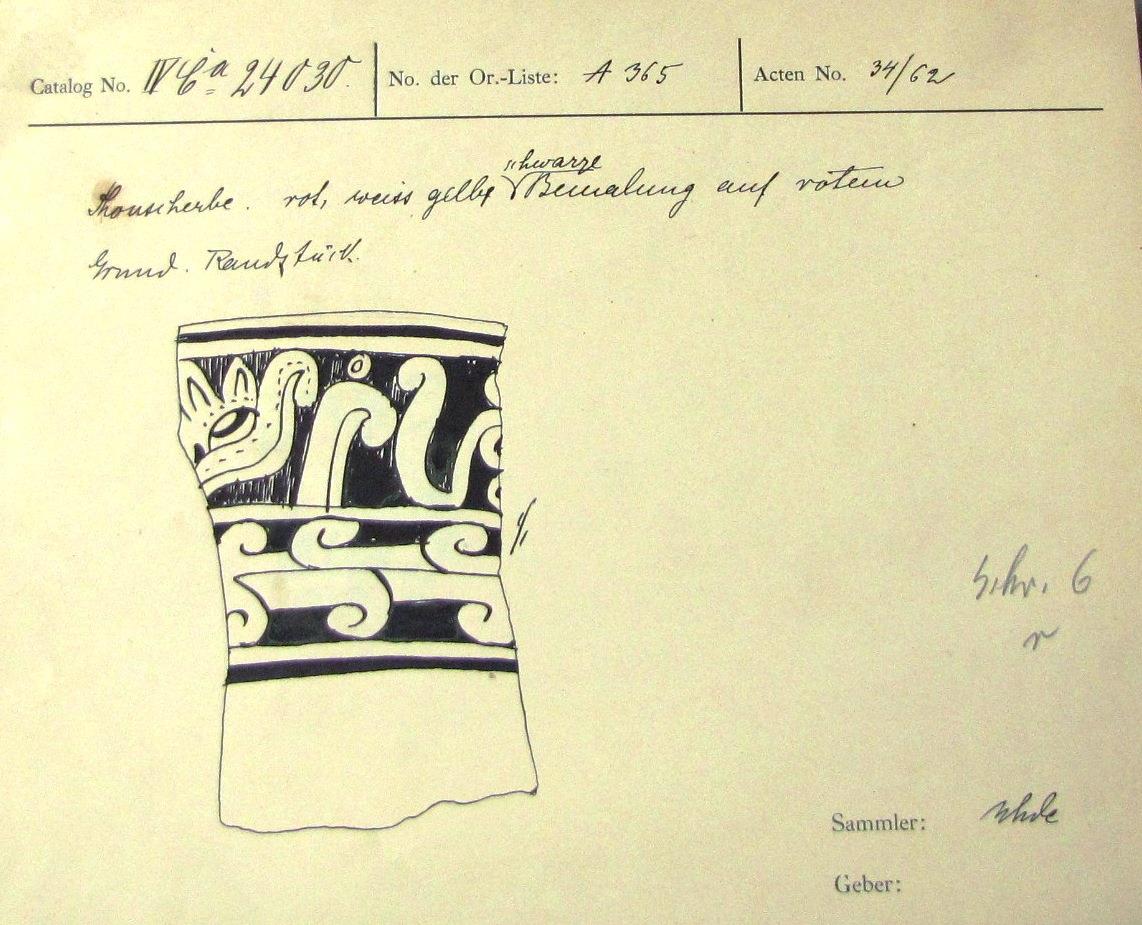 Catalog No. IV Ca 24030. No. der Or.-Liste: A 365 Acten No. 34/62
schwarze
Thonscherbe. rot, weiss gelbe Bemalung auf rotem
Grund. Randstück.
1/1
Schr. 6
r
Sammler: Uhde
Geber: